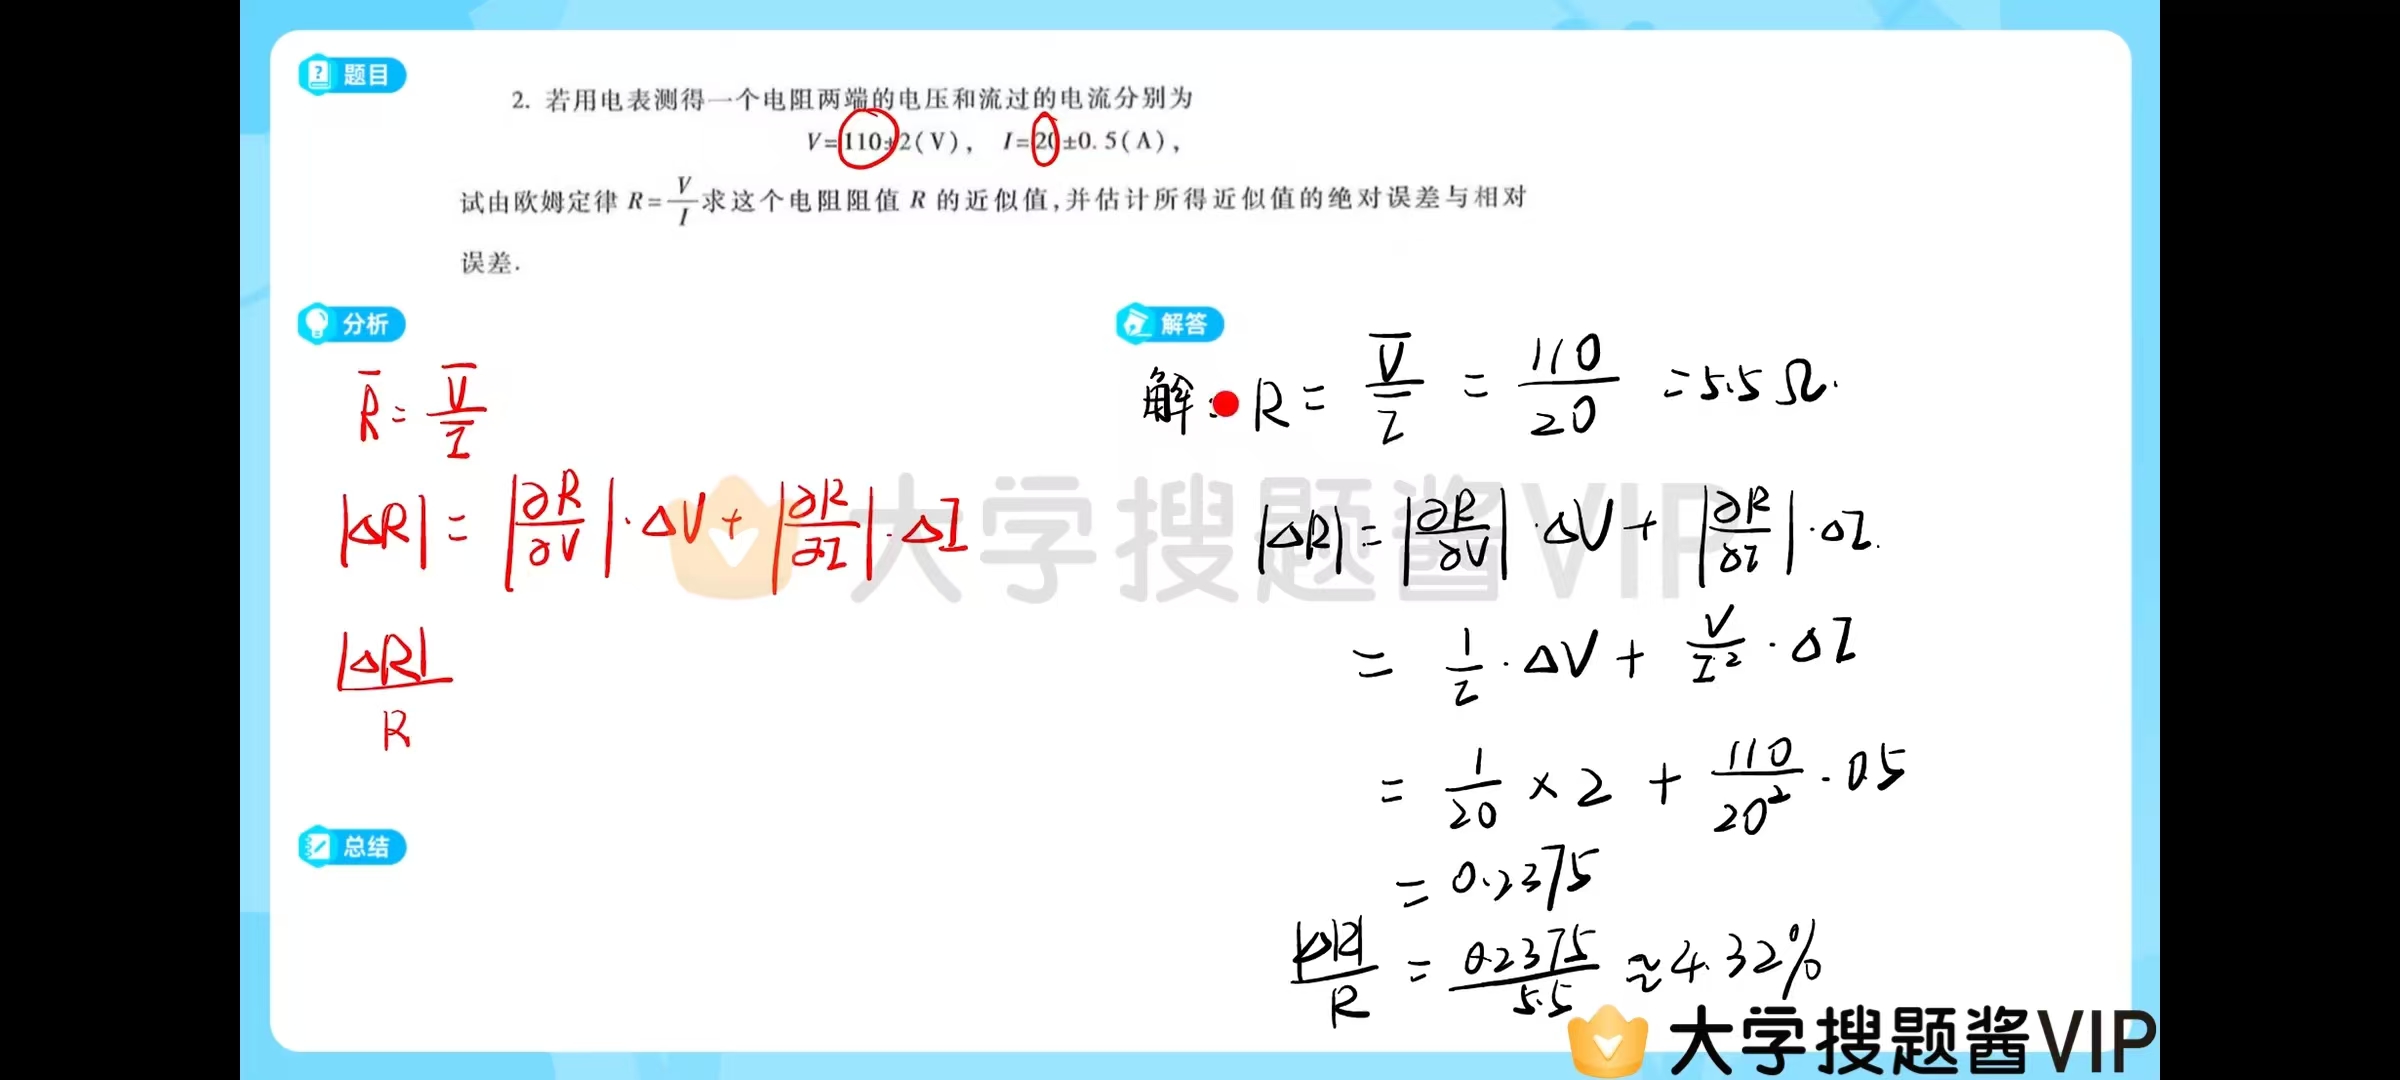 题目
2. 若用电表测得一个电阻两端的电压和流过的电流分别为
V=110±2(V), I=20±0.5(A),
试由欧姆定律 R=V/I 求这个电阻阻值 R 的近似值,并估计所得近似值的绝对误差与相对
误差.
分析
R̅ = V̅/I
|ΔR| = |∂R/∂V|·ΔV + |∂R/∂I|·ΔI
|ΔR|/R
总结
解答
解: R = V̅/I = 110/20 = 5.5 Ω.
|ΔR| = |∂R/∂V|·ΔV + |∂R/∂I|·ΔI.
= 1/I · ΔV + V/I² · ΔI
= 1/20 × 2 + 110/20² · 0.5
= 0.2375
|ΔR|/R = 0.2375/5.5 ≈ 4.32%
大学搜题酱VIP
大学搜题酱VIP